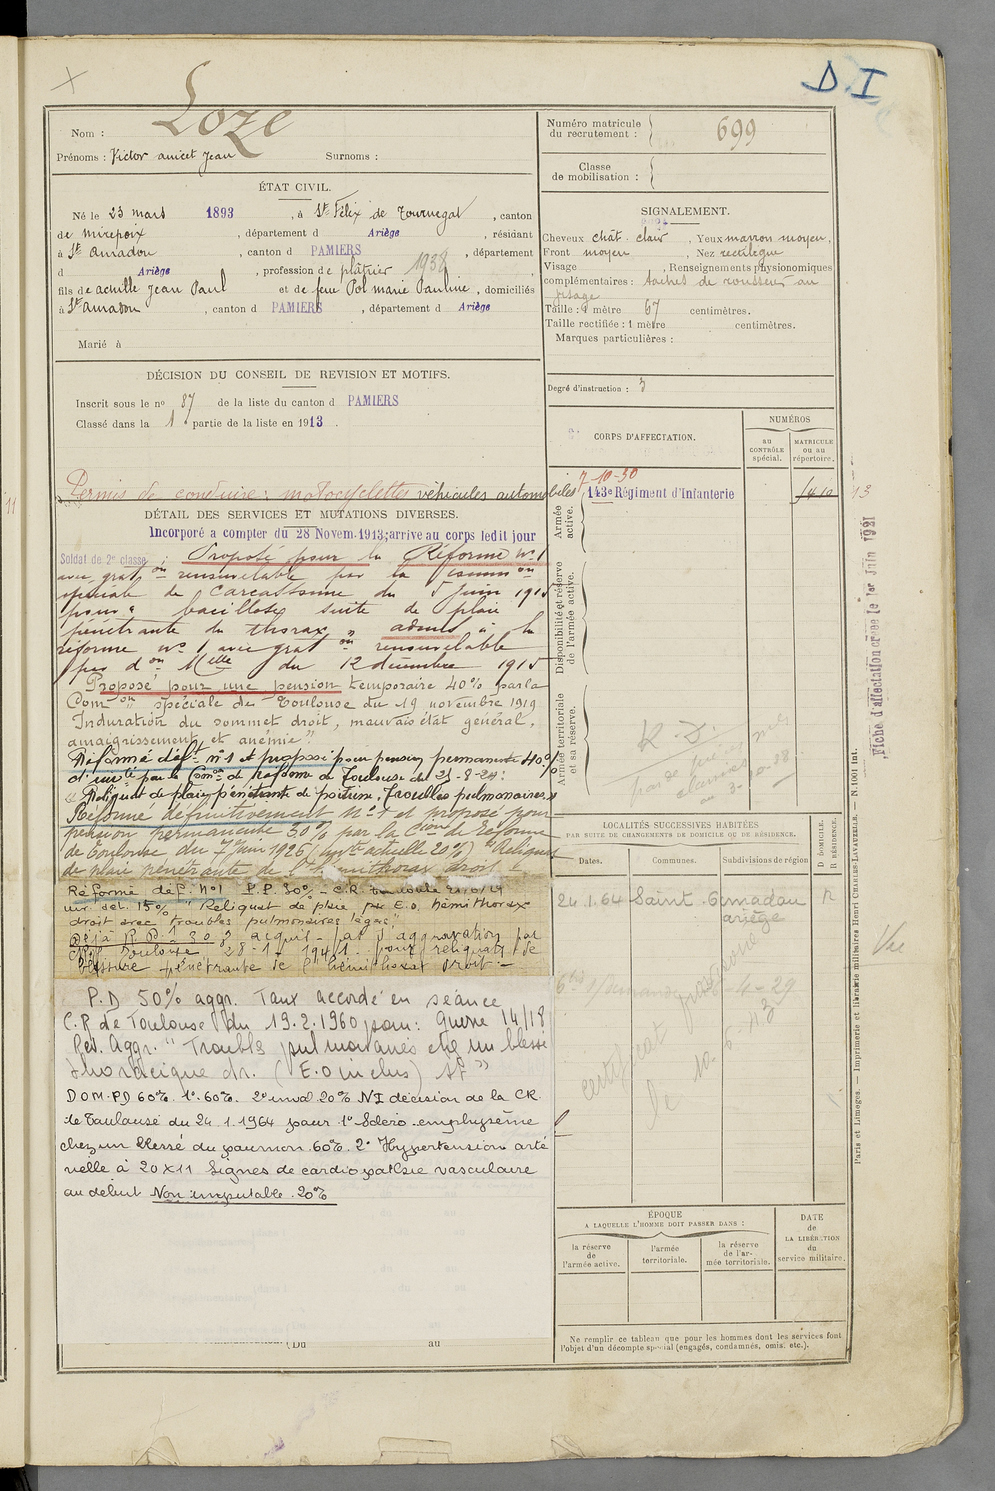 D.I
Nom : Loze
Prénoms : Victor anicet Jean Surnoms :
ÉTAT CIVIL.
Né le 23 mars 1893, à St Félix de Tournegat, canton
de Mirepoix, département d Ariège, résidant
à St Amadou, canton d PAMIERS, département
d Ariège, profession de plâtrier 1938
fils de achille Jean Paul et de feue Pol marie Pauline, domiciliés
à St Amadou, canton d PAMIERS, département d Ariège
Marié à
DÉCISION DU CONSEIL DE REVISION ET MOTIFS.
Inscrit sous le no 87 de la liste du canton d PAMIERS
Classé dans la 1e partie de la liste en 1913.
Permis de conduire : motocyclettes véhicules automobiles 7-10-30
DÉTAIL DES SERVICES ET MUTATIONS DIVERSES.
Incorporé a compter du 28 Novem. 1913; arrive au corps ledit jour
Soldat de 2e classe Proposé pour la Réforme no 1
avec graton renouvelable par la common
spéciale de Carcassonne du 5 Juin 1915
pour bacillose suite de plaie
pénétrante du thorax" admis à la
réforme no 1 avec graton renouvelable
par don Melle du 12 décembre 1915
Proposé pour une pension temporaire 40% par la
Comon spéciale de Toulouse du 19 novembre 1919
Induration du sommet droit, mauvais état général,
amaigrissement et anémie".
Réformé déft no 1 et proposé pour pension permanente 40%
d'invté par la Comon de Réforme de Toulouse du 21-8-24:
"Reliquat de plaie pénétrante de poitrine, troubles pulmonaires"
Réformé définitivement No 1 et proposé pour
pension permanente 30% par la Cion de Réforme
de Toulouse du 7 1926 (invté actuelle 20%) "Reliquat
de plaie pénétrante de l'hémithorax droit"
Réformé déf. No 1 P.P. 30% - C.R. Toulouse
15% "Reliquat de plaie par E.O. hémithorax
droit avec troubles pulmonaires légers"
Déjà acquis - pas d'aggravation par
Toulouse 28-1-1941 pour reliquat de
blessure pénétrante de l'hémithorax droit -
P.D 50% aggr. Taux accordé en séance
C.R de Toulouse du 19.2.1960 pour : Guerre 14/18
Rev. Aggr. "Troubles pulmonaires chez un blessé
thoracique dr. (E.O inclus)
DOM. PD 60% 1o 60%. 2o inval 20% NI décision de la CR
de Toulouse du 24.1.1964 pour 1o Scléro-emphysème
chez un blessé du poumon 60%. 2o Hypertension arté
rielle à 20x11 Signes de cardiopathie vasculaire
au début Non imputable. 20%
(Du au
Numéro matricule
du recrutement : 699
Classe
de mobilisation :
SIGNALEMENT.
Cheveux chât. clair, Yeux marron moyen,
Front moyen, Nez rectiligne
Visage , Renseignements physionomiques
complémentaires : taches de rousseur au
visage
Taille : 1 mètre 67 centimètres.
Taille rectifiée : 1 mètre centimètres.
Marques particulières :
Degré d'instruction : 3
CORPS D'AFFECTATION.
NUMÉROS
au
CONTRÔLE
spécial.
MATRICULE
ou au
répertoire.
Armée
active.
143e Régiment d'Infanterie
Disponibilité et réserve
de l'armée active.
Armée territoriale
et sa réserve.
LOCALITÉS SUCCESSIVES HABITÉES
PAR SUITE DE CHANGEMENTS DE DOMICILE OU DE RÉSIDENCE.
Dates. Communes. Subdivisions de région
D DOMICILE.
R RÉSIDENCE.
24.1.64 Saint-Amadou R
ariège
certificat
le 10-6-
ÉPOQUE
A LAQUELLE L'HOMME DOIT PASSER DANS :
DATE
DE
LA LIBÉRATION
du
service militaire.
la réserve
de
l'armée active.
l'armée
territoriale.
la réserve
de l'ar-
mée territoriale.
Ne remplir ce tableau que pour les hommes dont les services font
l'objet d'un décompte spécial (engagés, condamnés, omis, etc.).
Fiche d'affectation créée le 1er Juin 1921
Vu
Paris et Limoges. — Imprimerie et librairie militaires Henri CHARLES-LAVAUZELLE. — N. 1001 Int.